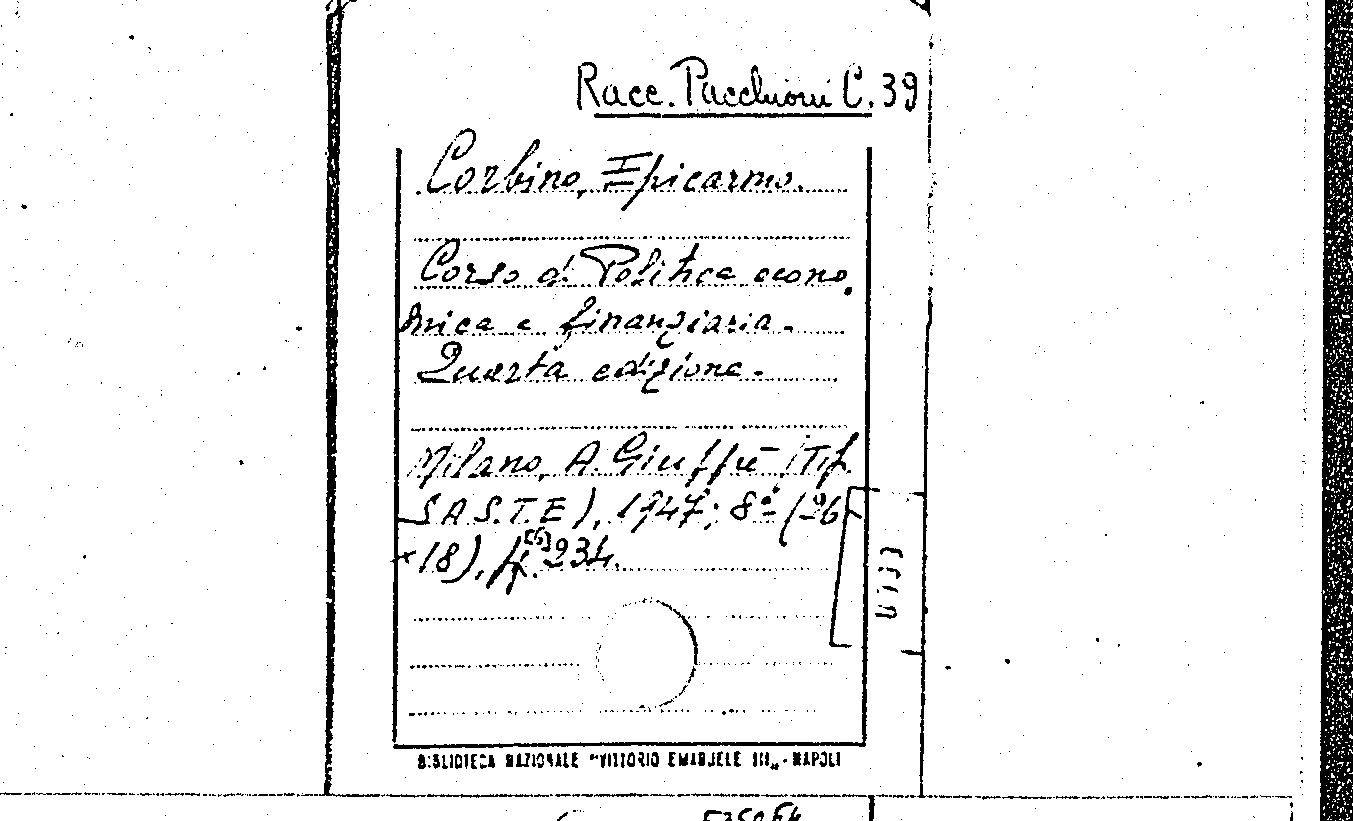 Racc. Pacchioni C. 39
Corbino, Epicarmo.
Corso di Politica econo.
mica e finanziaria.
Quarta edizione.
Milano, A. Giuffrè (Tip.
S.A.S.T.E.), 1947; 8º (26
×18), pp. [6] 234.
BIBLIOTECA NAZIONALE "VITTORIO EMANUELE III„ - NAPOLI